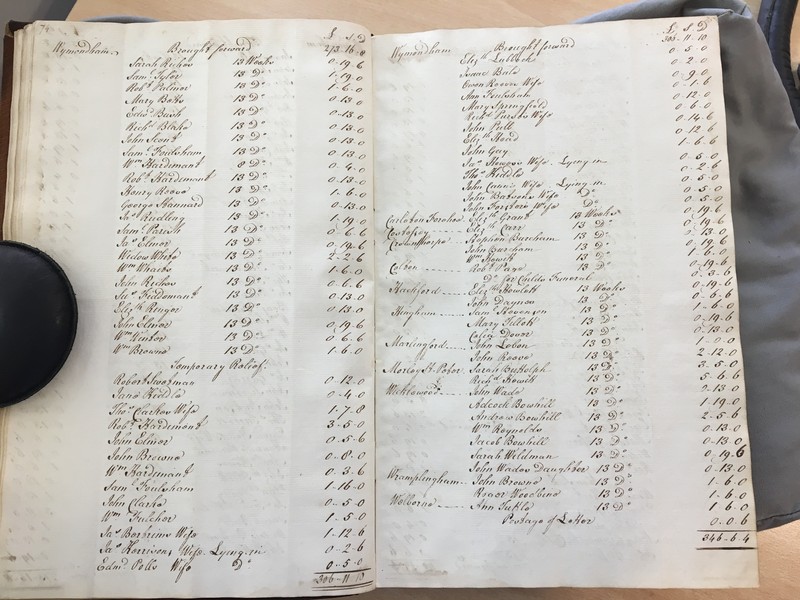 74
£ s D
Wymondham Brought forward 273-16-8
Sarah Rechos 13 Weeks 0-19-6
Sam.l Tylor 13 Do 1-19-0
Rob.t Palmer 13 Do 1-6-0
Mary Bats 13 Do 0-13-0
Edw.d Bush 13 Do 0-13-0
Rich.d Blake 13 Do 0-13-0
John Scont 13 Do 0-13-0
Sam.l Foulsham 13 Do 0-13-0
Wm Hardement 8 Do 0-4-0
Rob.t Hardement 13 Do 0-13-0
Henry Reeve 13 Do 1-6-0
George Hannard 13 Do 0-13-0
Ja.s Rudling 13 Do 1-19-0
Sam Parish 13 Do 0-6-6
Ja.s Elmer 13 Do 0-19-6
Widow White 13 Do 2-2-6
Wm 13 Do 1-6-0
John Rechos 13 Do 0-6-6
Ja.s Fiddement 13 Do 0-13-0
Eliz.th Ringer 13 Do 0-13-0
John Elmer 13 Do 0-19-6
Wm Winter 13 Do 0-6-6
Wm Browne 13 Do 1-6-0
Temporary Relief.
Robert Scoreman 0-12-0
Jane Riddle 0-4-0
Tho.s Clarkes Wife 1-7-8
Rob.t Hardement 3-5-0
John Elmer 0-5-6
John Browne 0-8-0
Wm Hardement 0-3-6
Sam.l Foulsham 1-16-0
John Clarke 0-5-0
Wm Fulcher 1-5-0
Ja.s Barbrems Wife 1-12-6
Ja.s Harrisons Wife Lying-in 0-2-6
Edm.d Polls Wife Do 0-5-0
306-11-10
£ s D
Wymondham Brought forward 306-11-10
Eliz.th Lubbock 0-5-0
Isaac Bale 0-2-0
Owen Reeves Wife 0-9-0
Ann Foulsham 0-1-6
Mary Springfield 0-12-0
Rich.d Wife 0-6-0
John Pell 0-14-6
Eliz.th Head 0-12-6
John Gay 1-6-6
Ja.s Wife Lying-in 0-5-0
Tho.s Riddle 0-2-6
John Canns Wife Lying-in 0-5-0
John Batsons Wife Do 0-5-0
John Forsters Wife Do 0-5-0
Carleton Forehoe Eliz.th Grant 13 Weeks 0-19-6
Costessey Eliz.th Carr 13 Do 0-19-6
Crownthorpe Stephen Barcham 13 Do 0-13-0
John Barcham 13 Do 0-19-6
Wm Howitt 13 Do 1-6-0
Colton Rob.t Page 13 Do 0-19-6
Do for Childs Funeral 0-3-6
Hackford Eliz.th Howlett 13 Weeks 0-19-6
John Daynes 13 Do 0-6-6
Hingham Sam Stevenson 13 Do 1-6-0
Mary Tillott 13 Do 0-19-6
Dover 13 Do 0-13-0
Marlingford John Lebon 13 Do 1-0-0
John Reeve 13 Do 2-12-0
Morley St. Peter Sarah Buttolph 13 Do 3-5-0
Rich.d Howitt 13 Do 5-6-6
Wicklewood John Wade 13 Do 2-13-0
Adcock Bowhill 13 Do 1-19-0
Andrew Bowhill 13 Do 2-5-6
Wm Reynolds 13 Do 0-13-0
Jacob Bowhill 13 Do 0-13-0
Sarah Weldman 13 Do 0-19-6
John Wades Daughter 13 Do 0-13-0
Wramplingham John Browne 13 Do 1-6-0
Woodbine 13 Do 1-6-0
Welborne Ann Tickle 13 Do 1-6-0
Postage of Letter 0-0-6
346-6-4